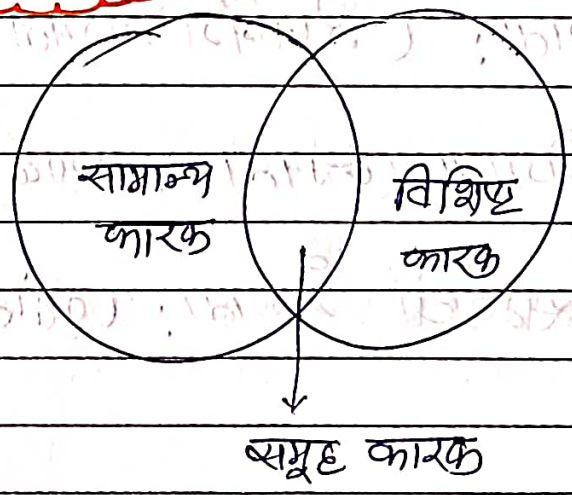 सामान्य
कारक
विशिष्ट
कारक
समूह कारक